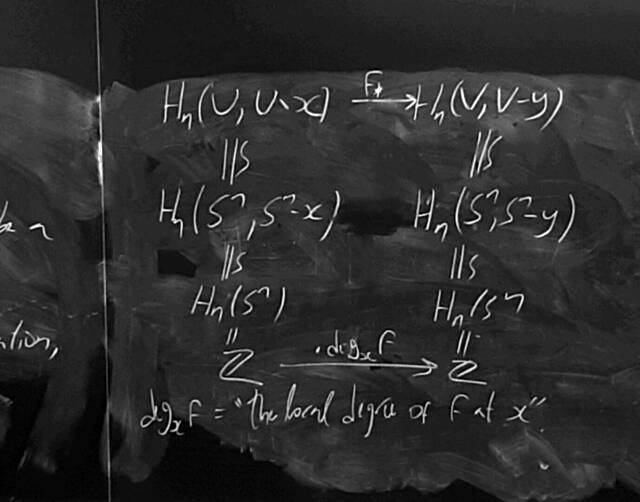 Hₙ(U, U∖x) —F*→ Hₙ(V, V-y)
||S ||S
Hₙ(Sⁿ, Sⁿ-x) Hₙ(Sⁿ, Sⁿ-y)
||S ||S
Hₙ(Sⁿ) Hₙ(Sⁿ
|| ||
tion,
ℤ —·degₓF→ ℤ
degₓF = "the local degree of F at x".